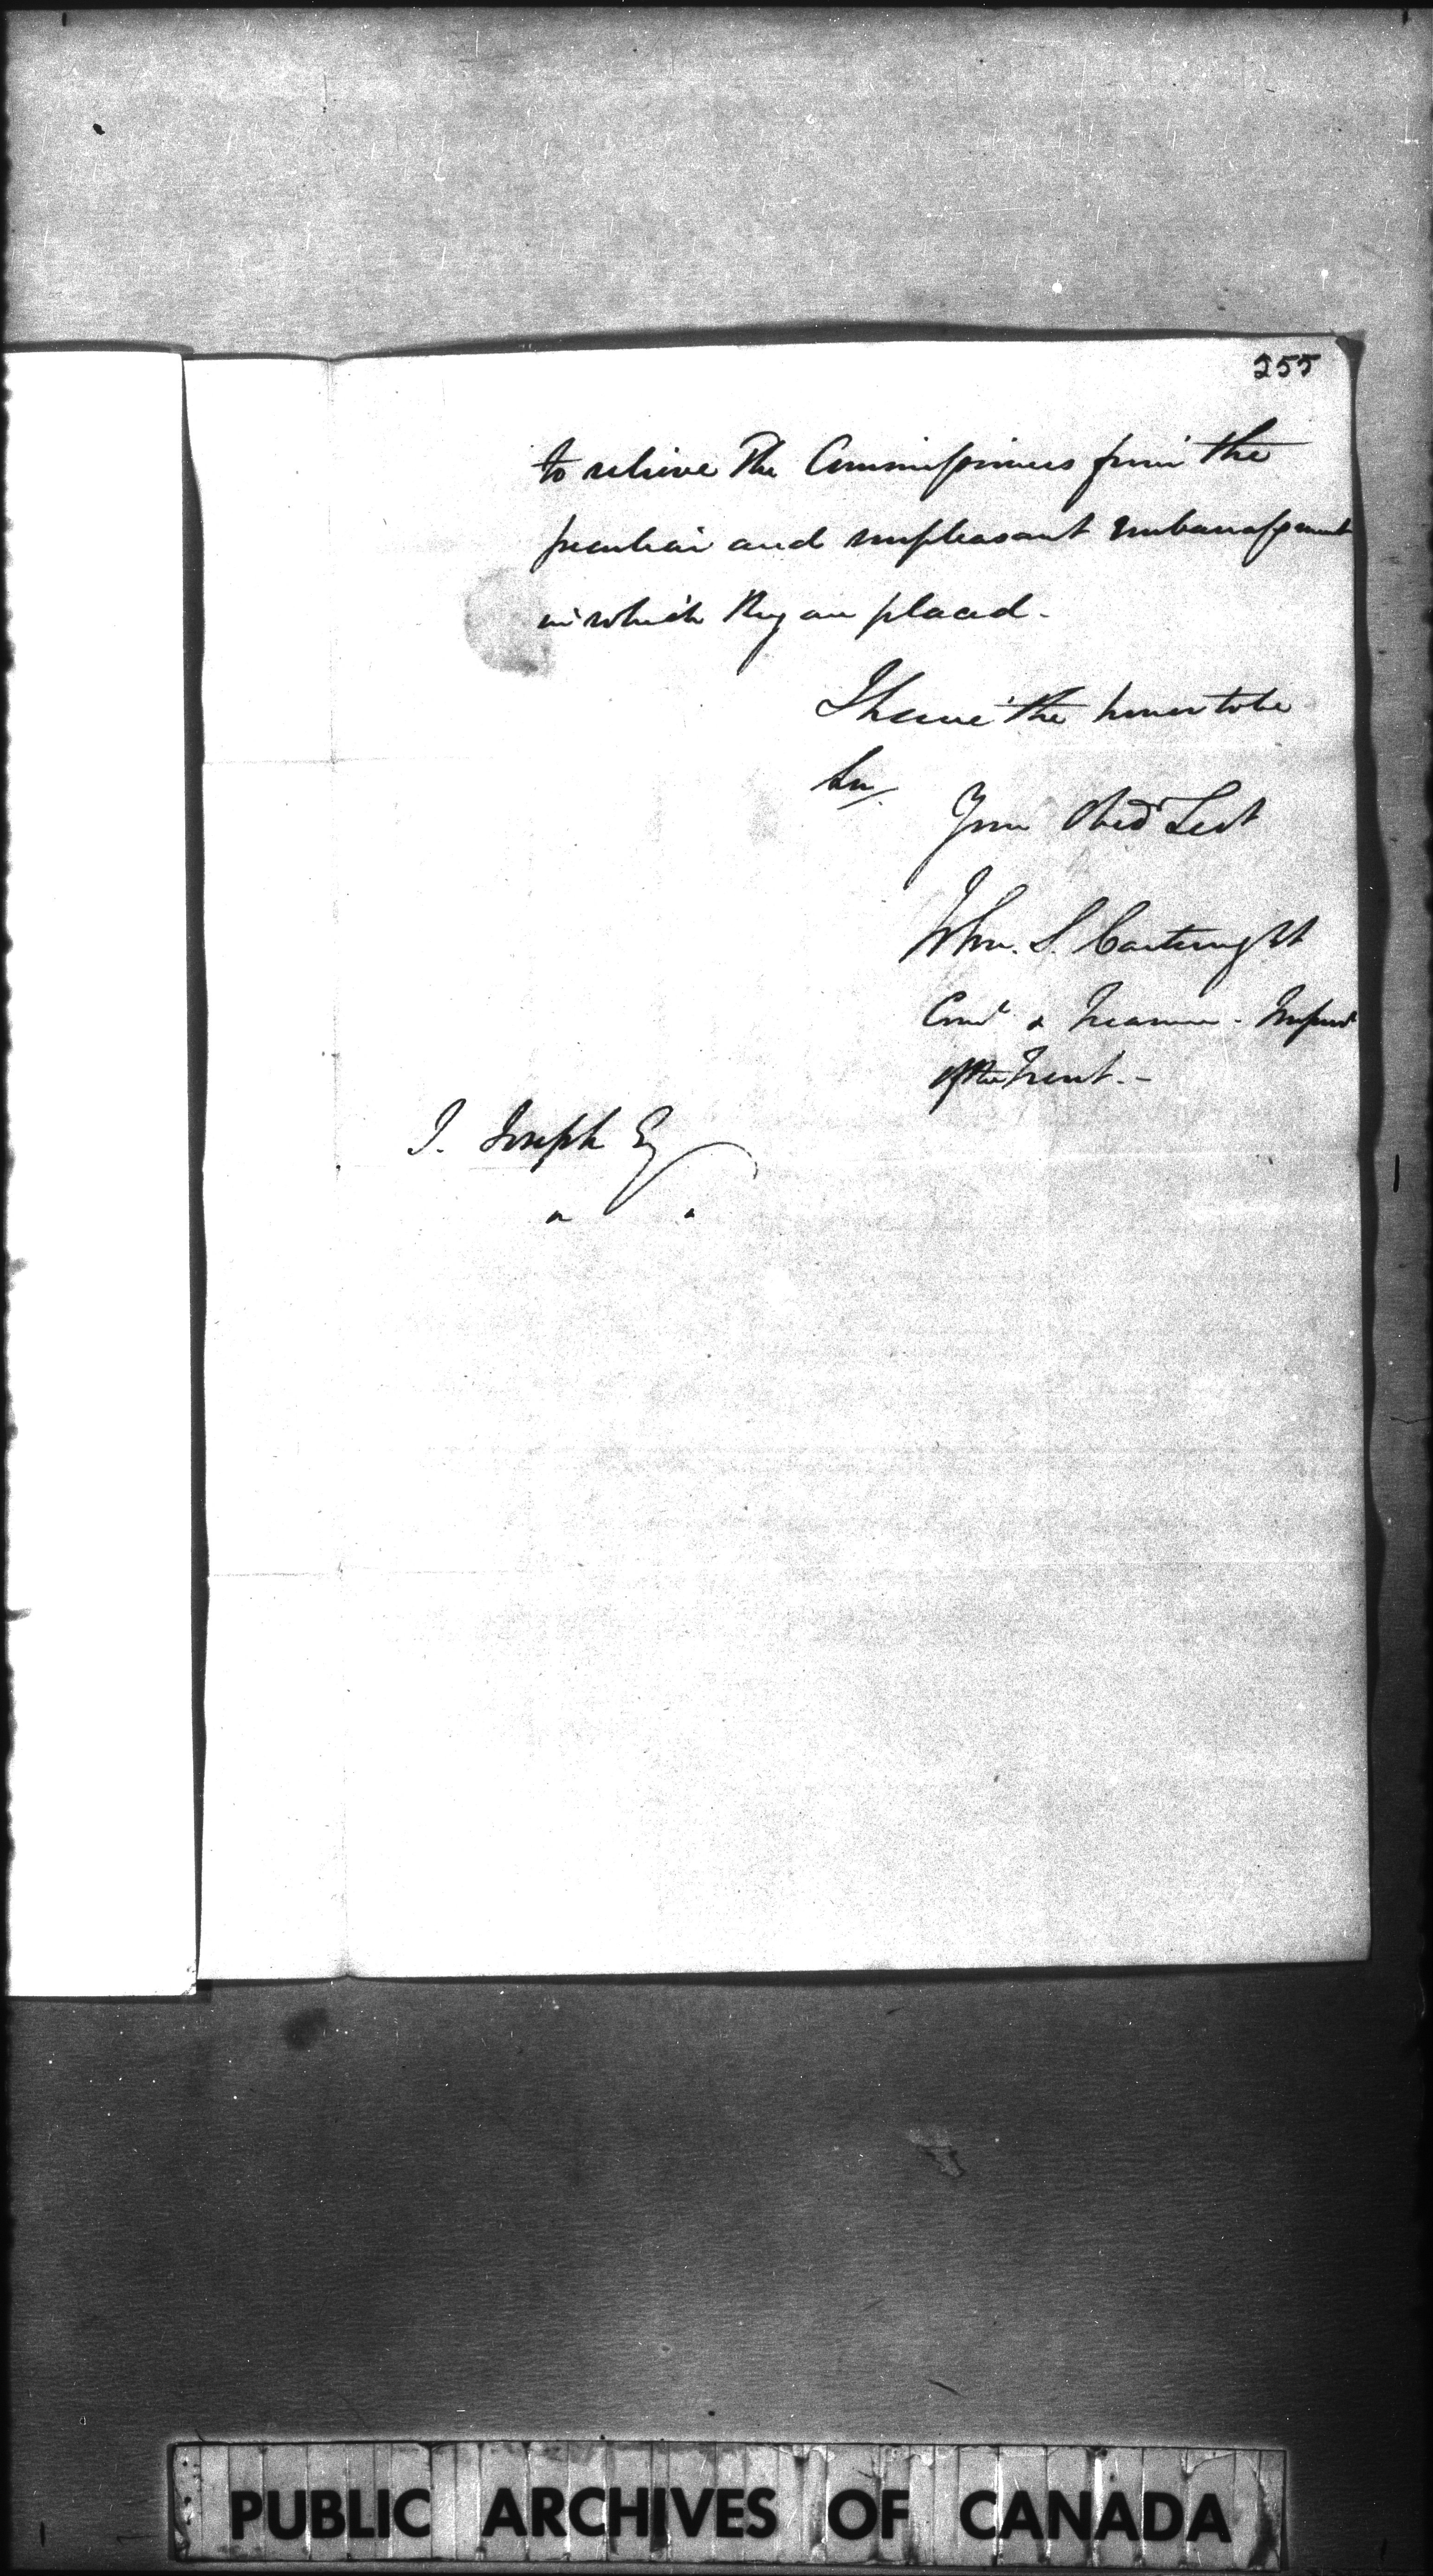 255
to relieve the Commissioners from the
peculiar and unpleasant embarassment
in which they are placed -
I have the honor to be
Sir,
Your Obed Sevt
John. S. Cartwright
Com & Treasurer - Improvt
of the Trent. -
J. Joseph Esq
" "
PUBLIC ARCHIVES OF CANADA